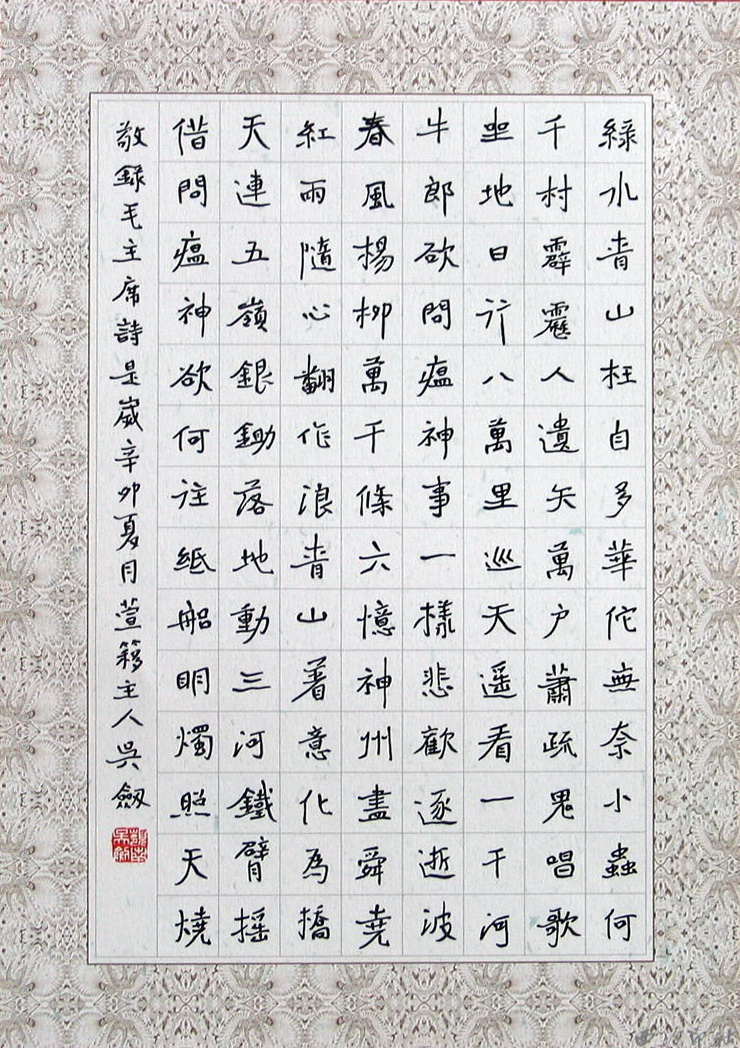 綠水青山枉自多華佗無奈小蟲何
千村霹靂人遺矢萬户蕭疏鬼唱歌
坐地日行八萬里巡天遥看一千河
牛郎欲問瘟神事一樣悲歡逐逝波
春風楊柳萬千條六憶神州盡舜堯
紅雨隨心翻作浪青山著意化為橋
天連五嶺銀鋤落地動三河鐵臂摇
借問瘟神欲何往紙船明燭照天燒
敬録毛主席詩是歲辛卯夏月萱簃主人吳劍